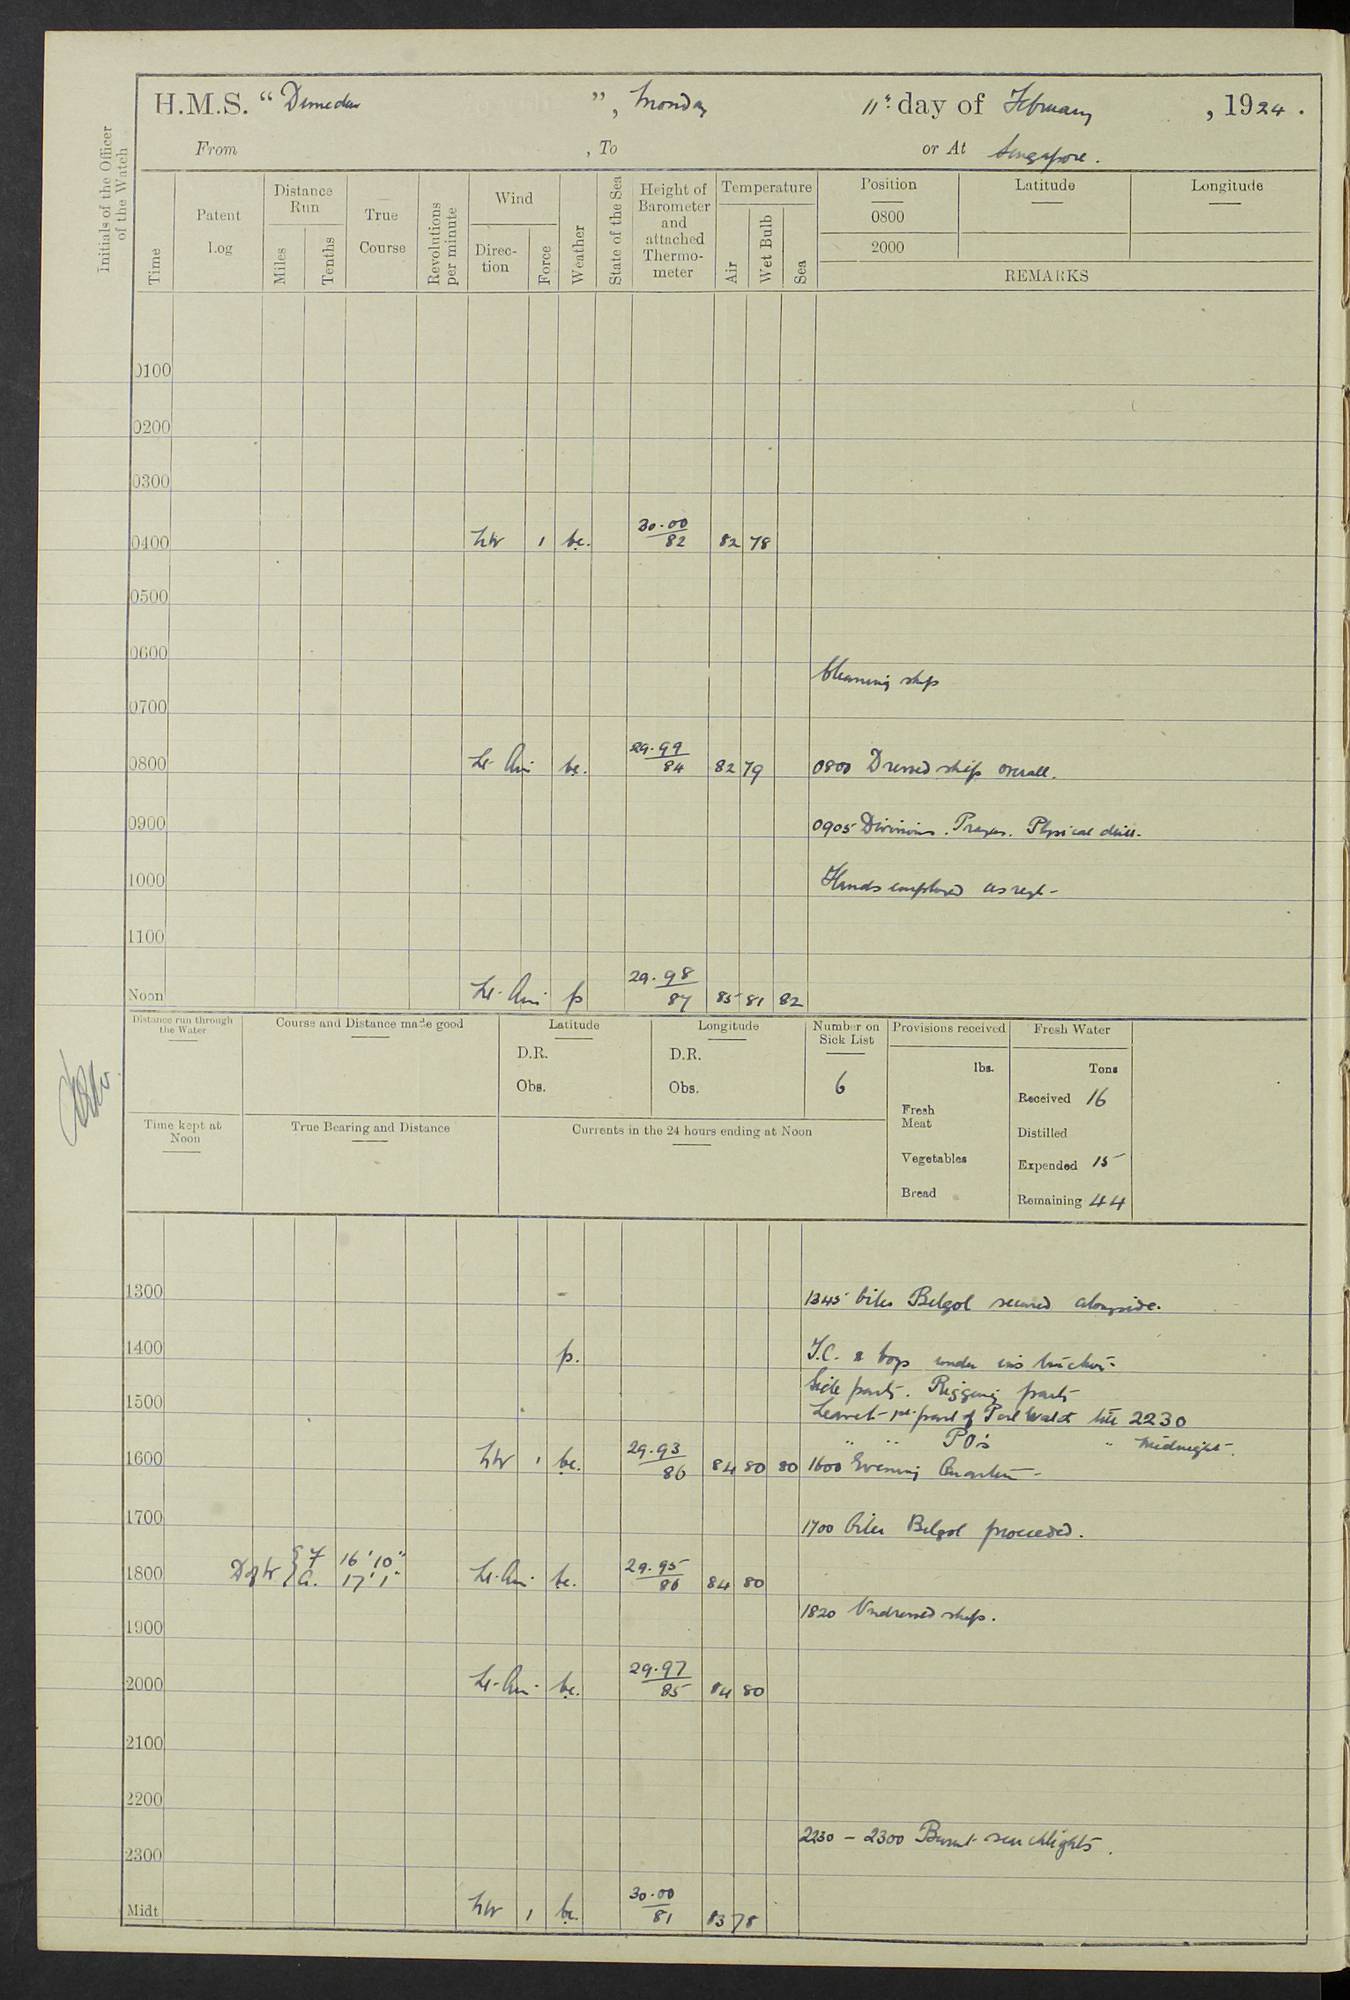 H.M.S. “Diomede”, Monday 11th day of February, 1924.
From , To or At Singapore.
Initials of the Officer of the Watch
Time
Patent Log
Distance Run
Miles
Tenths
True Course
Revolutions per minute
Wind
Direction
Force
Weather
State of the Sea
Height of Barometer and attached Thermometer
Temperature
Air
Wet Bulb
Sea
Position Latitude Longitude
0800
2000
REMARKS
0100
0200
0300
0400 NW 1 bc. 30.00/82 82 78
0500
0600
Cleaning ship
0700
0800 Lt. Airs bc. 29.99/84 82 79 0800 Dressed ship overall.
0900 0905 Divisions. Prayers. Physical drill.
1000 Hands employed as reqd-
1100
Noon Lt. Airs p 29.98/87 85 81 82
Distance run through the Water
Course and Distance made good
Latitude
D.R.
Obs.
Longitude
D.R.
Obs.
Number on Sick List
6
Provisions received
lbs.
Fresh Meat
Vegetables
Bread
Fresh Water
Tons
Received 16
Distilled
Expended 15
Remaining 44
Time kept at Noon
True Bearing and Distance
Currents in the 24 hours ending at Noon
1300 1345 Oiler Belgol secured alongside.
1400 p. T.C. & boys under instruction
Side party. Rigging party
1500 Leave to 1st part of Port Watch till 2230
" " PO's " Midnight.
1600 NW 1 bc. 29.93/86 84 80 80 1600 Evening Quarters-
1700 1700 Oiler Belgol proceeded.
1800 D of W { F 16'10" A. 17'1" Lt. Airs bc. 29.95/86 84 80
1820 Undressed ship.
1900
2000 Lt. Airs bc. 29.97/85 84 80
2100
2200
2230 – 2300 Burnt searchlights.
2300
Midt NW 1 bc. 30.00/81 83 78